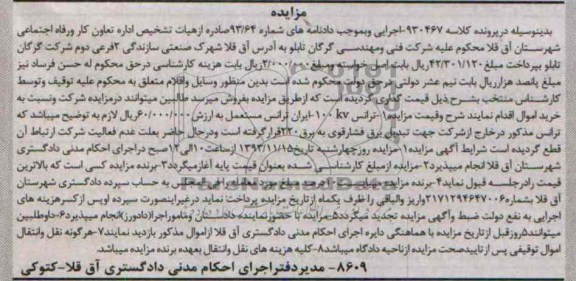 مزایده
بدینوسیله درپرونده کلاسه ۹۳۰۴۶۷-اجرایی وبموجب دادنامه های شماره ۹۳/۶۴صادره ازهیات تشخیص اداره تعاون کار ورفاه اجتماعی
شهرستان آق قلا محکوم علیه شرکت فنی ومهندسی گرگان تابلو به آدرس آق قلا شهرک صنعتی سازندگی ۲فرعی دوم شرکت گرگان
تابلو بپرداخت مبلغ ۴۲/۳۰۱/۱۲۰ریال بابت اصل خواسته ومبلغ ۲/۰۰۰/۰۰۰ریال بابت هزینه کارشناسی درحق محکوم له حسن فرساد نیز
مبلغ پانصد هزارریال بابت نیم عشر دولتی درحق دولت محکوم شده است بدین منظور وسایل واقلام متعلق به محکوم علیه توقیف وتوسط
کارشناس منتخب بشرح ذیل قیمت گردیده است که ازطریق مزایده بفروش میرسد طالبین میتوانند درمزایده شرکت ونسبت به
خرید اموال اقدام نمایند شرح وقیمت مزایده۱-ترانس ۱۰۰ kv-ایران ترانس مستعمل به ارزش ۶۰/۰۰۰/۰۰۰ریال لازم به توضیح میباشد که
ترانس مذکور درخارج ازشرکت جهت تبدیل برق فشارقوی به برق ۲۲۰قرارگرفته است ودرحال حاضر بعلت عدم فعالیت شرکت ارتباط آن
قطع گردیده است شرایط آگهی مزایده۱-مزایده روزچهارشنبه تاریخ ۱۳۹۳/۱۱/۱۵ازساعت۱۰الی۱۲صبح دراجرای احکام مدنی دادگستری
شهرستان آق قلا انجام میپذیرد۲-مزایده ازمبلغ کارشناسی شده بعنوان قیمت پایه آغازمیگردد۳-برنده مزایده کسی است که بالاترین
قیمت رادرجلسه قبول نماید۴-برنده مزایده مبلغ مورد مزایده رافی المجلس به حساب سپرده دادگستری شهرستان
آق قلا بشماره۲۱۷۱۲۹۴۶۴۷۰۰۶واریز والباقی راظرف یکماه ازتاریخ مزایده پرداخت نماید درغیراینصورت سپرده اوپس ازکسرهزینه های
اجرایی به نفع دولت ضبط وآگهی مزایده تجدید میگردد۵-مزایده با حضورنماینده دادستان ومامور اجرا(دادورز)انجام میپذیرد۶-داوطلبین
میتوانند۵روزقبل ازتاریخ مزایده با هماهنگی دایره اجرای احکام مدنی دادگستری آق قلا ازاموال مذکور بازدید نمایند۷-هرگونه نقل وانتقال
اموال توقیفی پس ازتاییدصحت مزایده ازناحیه دادگاه میباشد۸-کلیه هزینه های نقل وانتقال بعهده برنده مزایده میباشد.
۸۶۰۹- مدیردفتراجرای احکام مدنی دادگستری آق قلا-کتوکی